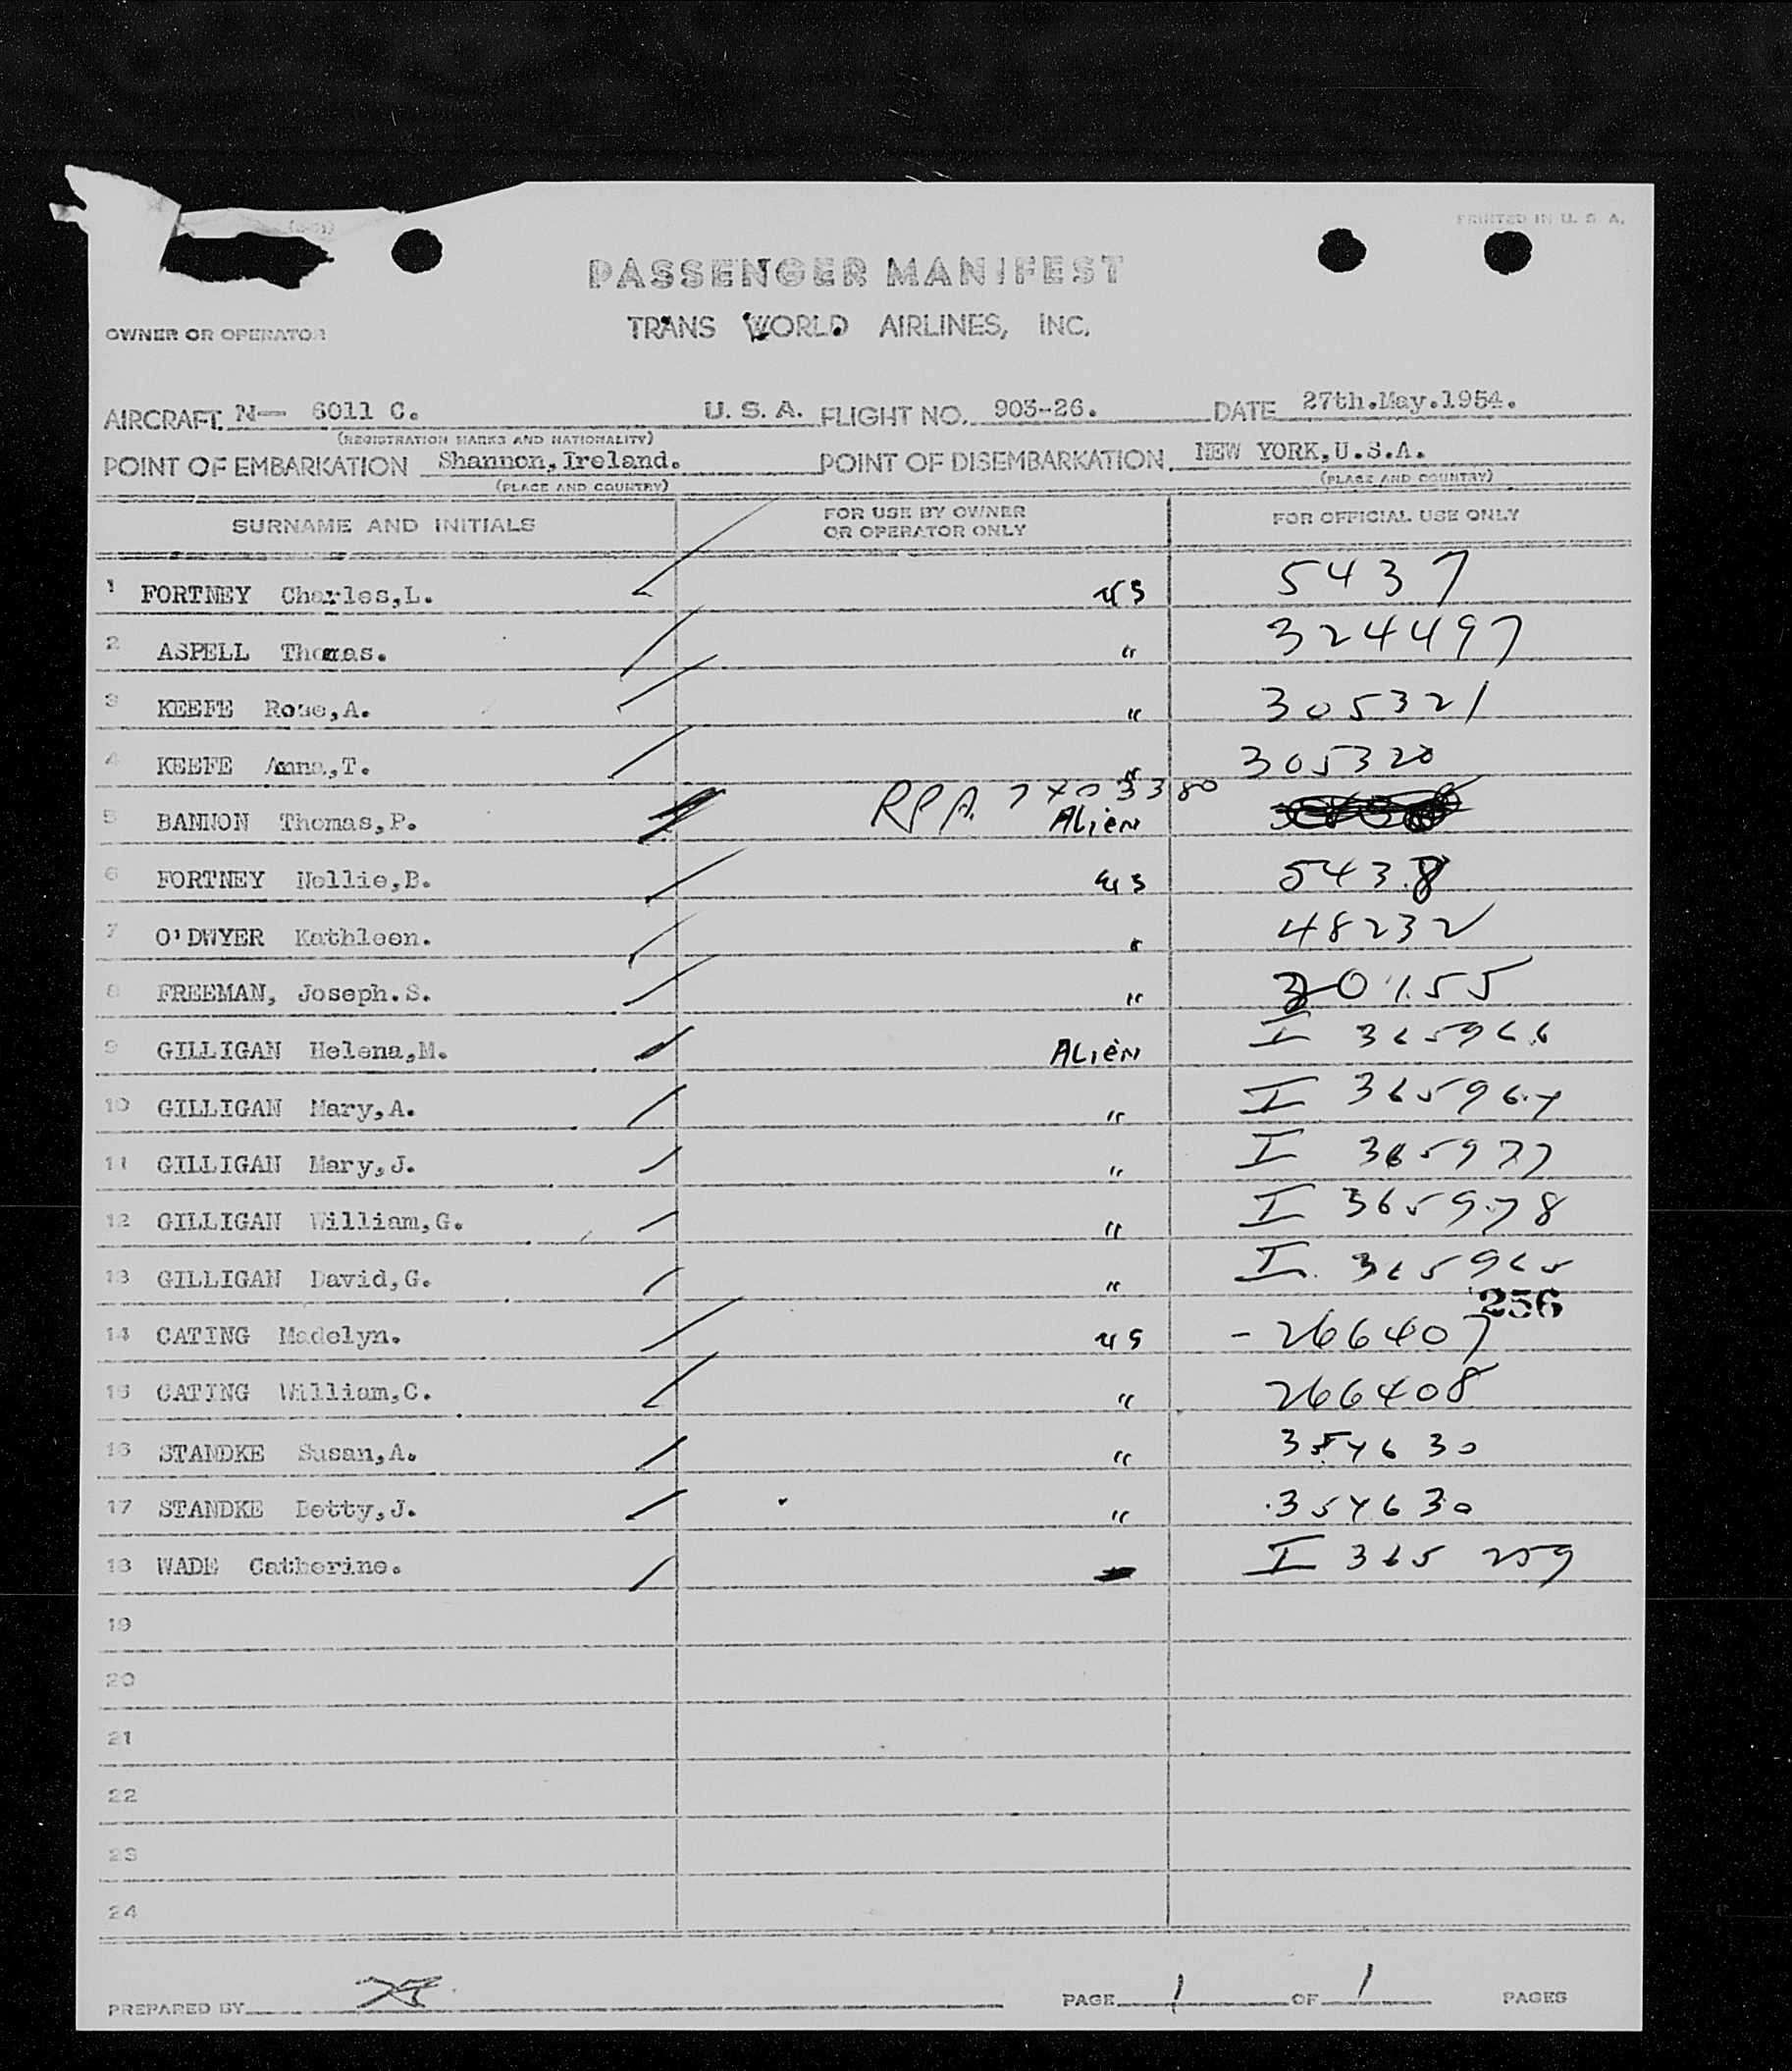 (5-51)
PRINTED IN U. S. A.
PASSENGER MANIFEST
OWNER OR OPERATOR TRANS WORLD AIRLINES, INC.
AIRCRAFT N— 6011 C. U. S. A. FLIGHT NO. 903-26. DATE 27th.May.1954.
(REGISTRATION MARKS AND NATIONALITY)
POINT OF EMBARKATION Shannon,Ireland. POINT OF DISEMBARKATION NEW YORK,U.S.A.
(PLACE AND COUNTRY) (PLACE AND COUNTRY)
SURNAME AND INITIALS FOR USE BY OWNER OR OPERATOR ONLY FOR OFFICIAL USE ONLY
1 FORTNEY Charles,L. US 5437
2 ASPELL Thomas. " 324497
3 KEEFE Rose,A. " 305321
4 KEEFE Anna,T. " 305320
5 BANNON Thomas,P. RPA 7403380 Alien
6 FORTNEY Nellie,B. US 5438
7 O'DWYER Kathleen. " 48232
8 FREEMAN, Joseph.S. " 30155
9 GILLIGAN Helena,M. Alien I 365966
10 GILLIGAN Mary,A. " I 365967
11 GILLIGAN Mary,J. " I 365977
12 GILLIGAN William,G. " I 365978
13 GILLIGAN David,G. " I 365965
256
14 CATING Madelyn. US - 266407
15 CATING William,C. " 266408
16 STANDKE Susan,A. " 354630
17 STANDKE Betty,J. " 354630
18 WADE Catherine. I 365 259
19
20
21
22
23
24
PREPARED BY PAGE 1 OF 1 PAGES